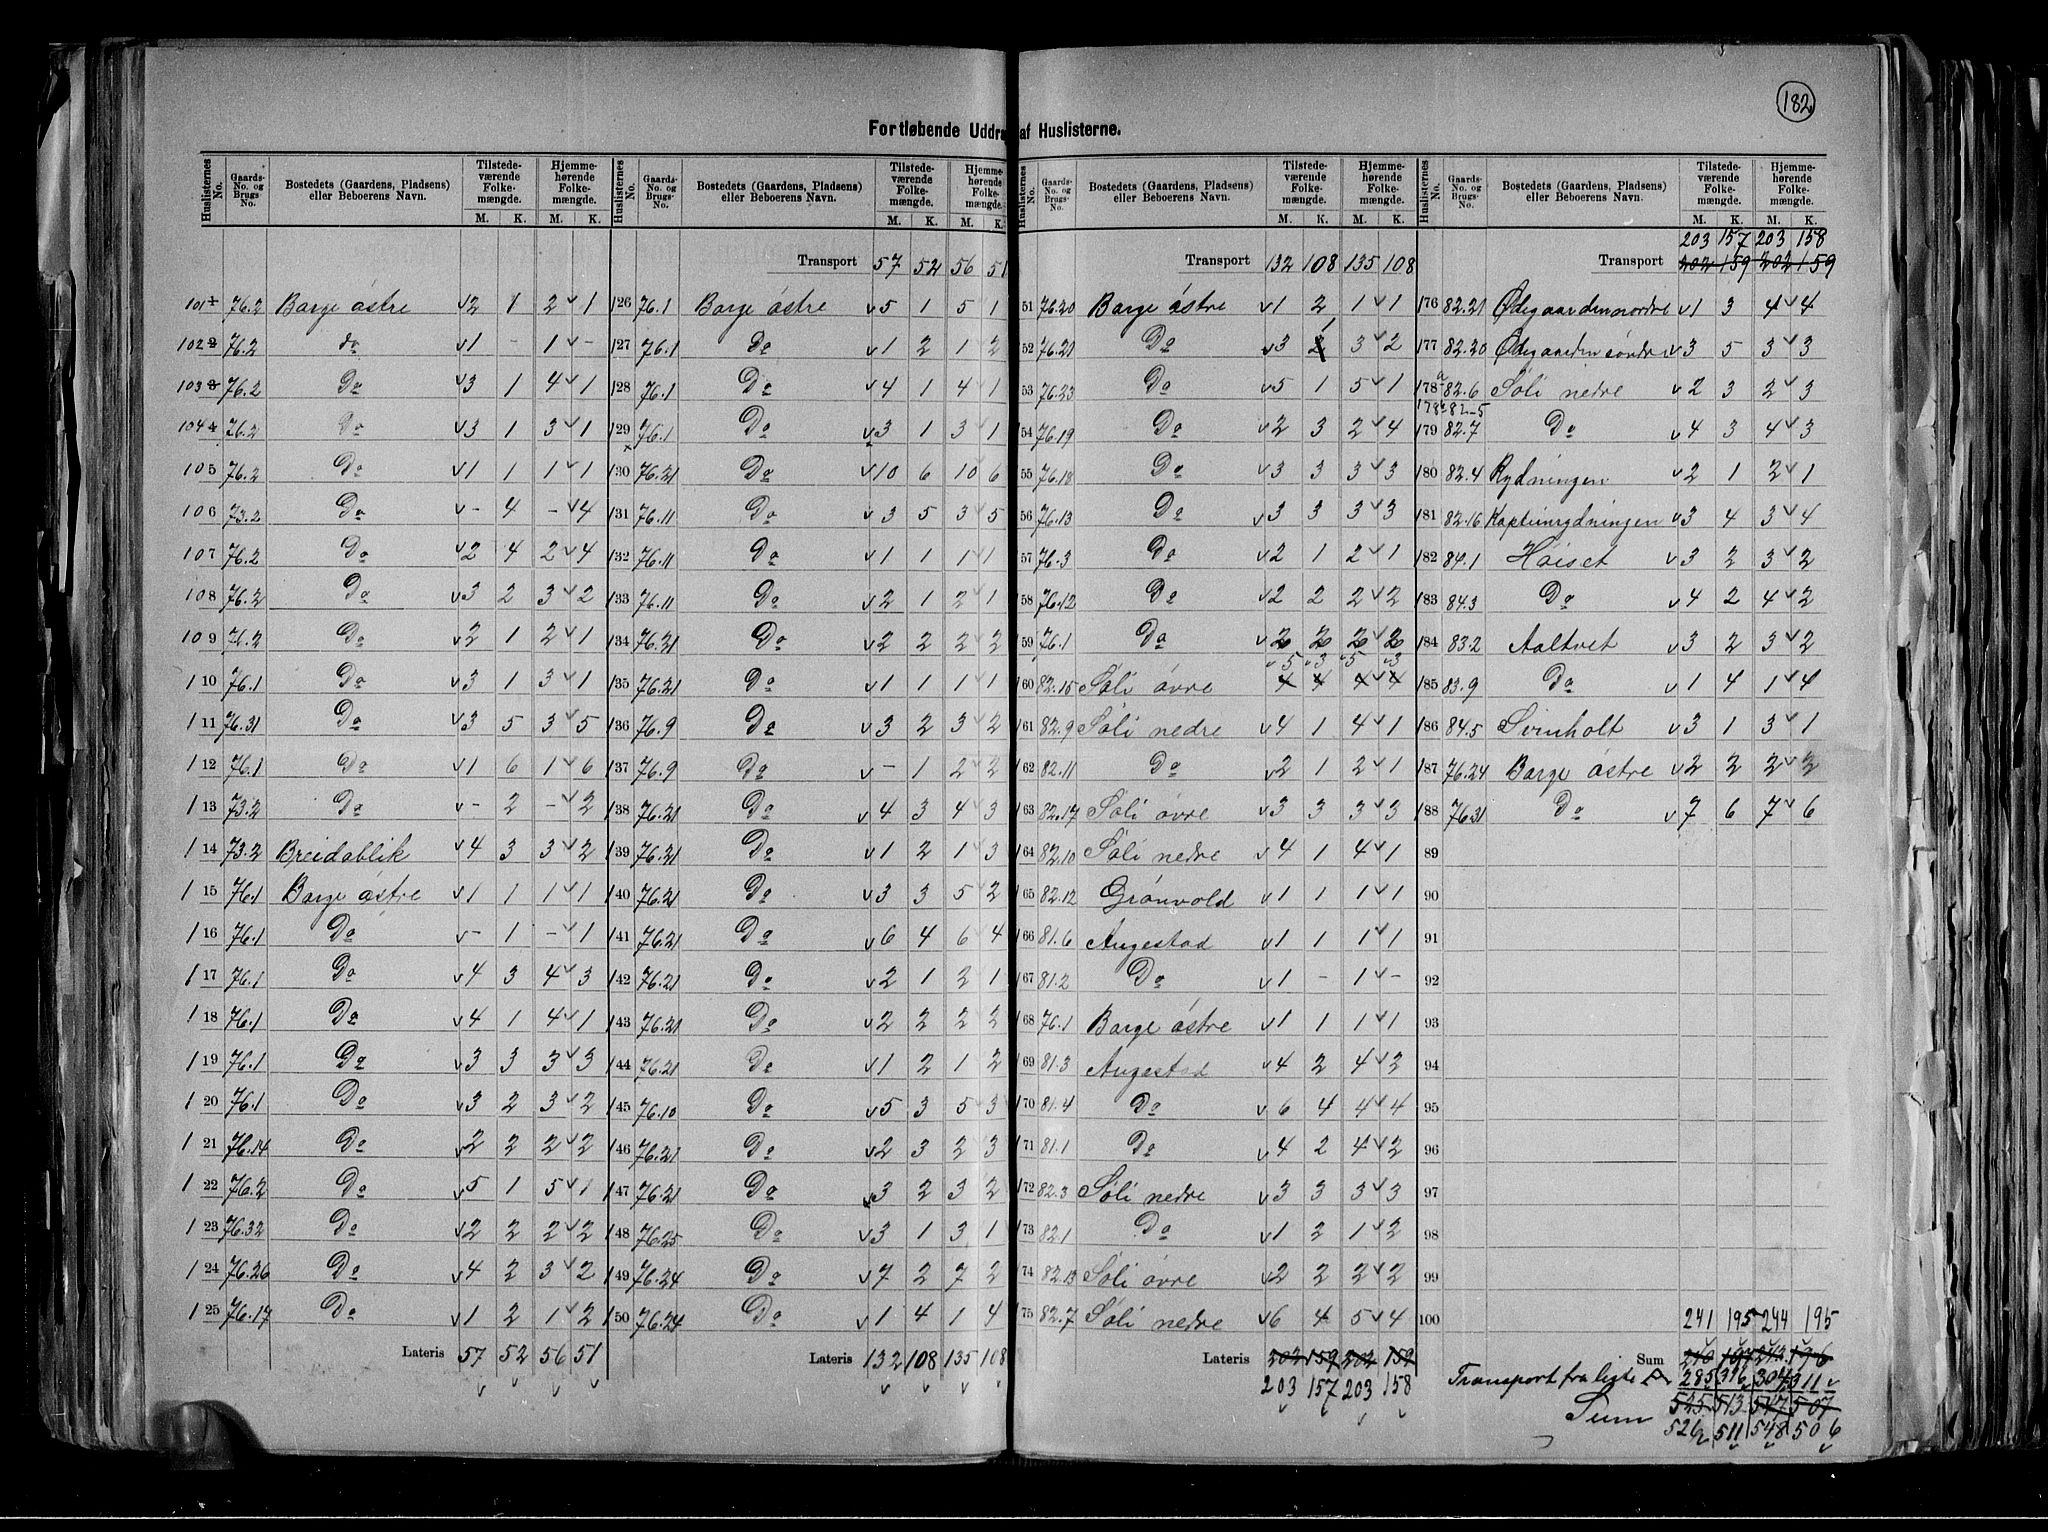 182
Fortløbende Uddra af Huslisterne.
Huslisternes No. Gaards-No. og Brugs-No. Bostedets (Gaardens, Pladsens) eller Beboerens Navn. Tilstedeværende Folkemængde. M. K. Hjemmehørende Folkemængde. M. K.
Transport 57 52 56 51
Transport 132 108 135 108
203 157 203 158
Transport 202 159 202 159
101 76.2 Barge østre v2 1 2 v 1
102 76.2 do v1 - 1 v -
103 76.2 Do v3 1 4 v 1
104 76.2 Do v3 1 3 v 1
105 76.2 Do v1 1 1 v 1
106 73.2 Do v- 4 - v 4
107 76.2 Do v2 4 2 v 4
108 76.2 Do v3 2 3 v 2
109 76.2 Do v2 1 2 v 1
110 76.1 Do v3 1 3 v 1
111 76.31 Do v3 5 3 v 5
112 76.1 Do v1 6 1 v 6
113 73.2 Do v- 2 - v 2
114 73.2 Breidablik v4 3 3 v 2
115 76.1 Barge østre v1 1 1 v 1
116 76.1 Do v- 1 - v 1
117 76.1 Do v4 3 4 v 3
118 76.1 Do v4 1 4 v 1
119 76.1 Do v3 3 3 v 3
120 76.1 Do v3 2 3 v 2
121 76.14 Do v2 2 2 v 2
122 76.2 Do v5 1 5 v 1
123 76.32 Do v2 2 2 v 2
124 76.26 Do v4 2 3 v 2
125 76.17 Do v1 2 1 v 2
Lateris 57 52 56 51
126 76.1 Barge østre v5 1 5 1
127 76.1 Do v1 2 1 2
128 76.1 Do v4 1 4 1
129 76.1 Do v3 1 3 1
130 76.21 Do v10 6 10 6
131 76.11 Do v3 5 3 5
132 76.11 Do v1 1 1 1
133 76.11 Do v2 1 2 1
134 76.21 Do v2 2 2 2
135 76.21 Do v1 1 1 1
136 76.9 Do v3 2 3 2
137 76.9 Do v- 1 2 2
138 76.21 Do v4 3 4 3
139 76.21 Do v1 2 1 3
140 76.21 Do v3 3 5 2
141 76.21 Do v6 4 6 4
142 76.21 Do v2 1 2 1
143 76.21 Do v2 2 2 2
144 76.21 Do v1 2 1 2
145 76.10 Do v5 3 5 3
146 76.21 Do v2 3 2 3
147 76.21 Do v3 2 3 2
148 76.25 Do v3 1 3 1
149 76.24 Do v7 2 7 2
150 76.24 Do v1 4 1 4
Lateris 132 108 135 108
51 76.20 Barge østre v1 2 1 v 1
52 76.21 Do v3 1 3 v 2
53 76.23 Do v5 1 5 v 1
54 76.19 Do v2 3 2 v 4
55 76.18 Do v3 3 3 v 3
56 76.13 Do v3 3 3 v 3
57 76.3 Do v2 1 2 v 1
58 76.12 Do v2 2 2 v 2
59 76.1 Do v2 2 2 v 2
v5 v3 v5 v3
160 82.15 Søli øvre 4 4 4 4
161 82.9 Søli nedre v4 1 4 v 1
162 82.11 Do v2 1 2 v 1
163 82.17 Søli øvre v3 3 3 v 3
164 82.10 Søli nedre v4 1 4 v 1
165 82.12 Grønvold v1 1 1 v 1
166 81.6 Augestad v1 1 1 v 1
167 81.2 Do v1 - 1 v -
168 76.1 Barge østre v1 1 1 v 1
169 81.3 Augestad v4 2 4 v 2
170 81.4 Do v6 4 4 v 4
171 81.1 Do v4 2 4 v 2
172 82.3 Søli nedre v3 3 3 v 3
173 82.1 Do v1 2 1 v 2
174 82.13 Søli øvre v2 2 2 v 2
175 82.7 Søli nedre v6 4 5 v 4
Lateris 202 159 202 159
203 157 203 158
176 82.21 Ødegaarden nordre v1 3 4 v 4
177 82.20 Ødegaarden søndre v3 5 3 v 3
178a 82.6 Søli nedre v2 3 2 v 3
178b 82-5
179 82.7 Do v4 3 4 v 3
180 82.4 Rydningen v2 1 2 v 1
181 82.16 Kapteinrydningen v3 4 3 v 4
182 84.1 Høiset v3 2 3 v 2
183 84.3 Do v4 2 4 v 2
184 83.2 Aaltvet v3 2 3 v 2
185 83.9 Do v1 4 1 v 4
186 84.5 Svinholt v3 1 3 v 1
187 76.24 Barge østre v2 2 2 v 2
188 76.31 Do v7 6 7 v 6
89
90
91
92
93
94
95
96
97
98
99
100
241 195 244 195
Sum 240 197 243 196
Transport fra liste A 285 316 304 311
525 513 547 507
Sum 526 511 548 506